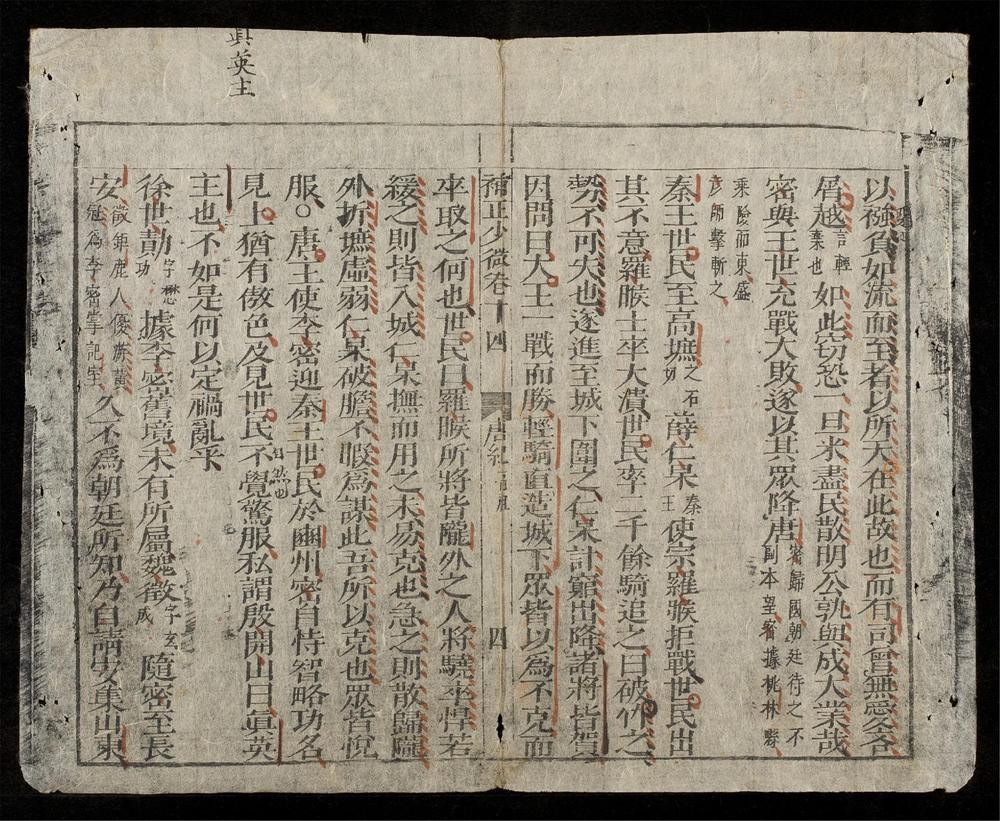 眞英主
以襁負如流而至者以所天在此故也而有司曾無愛吝
屑越言輕棄也如此竊恐一旦米盡民散明公孰與成大業哉
密與王世充戰大敗遂以其衆降唐密歸國朝廷待之不副本望密據桃林縣
乘險而東盛彦師擊斬之
秦王世民至高墌之石切薛仁杲秦王使宗羅㬋拒戰世民出
其不意羅㬋士卒大潰世民率二千餘騎追之曰破竹之
勢不可失也遂進至城下圍之仁杲計窮出降諸將皆賀
因問曰大王一戰而勝輕騎直造城下衆皆以為不克而
補正少微卷十四 唐紀 高祖 四
卒取之何也世民曰羅㬋所將皆隴外之人將驍卒悍若
緩之則皆入城仁杲撫而用之未易克也急之則散歸隴
外折墌虛弱仁杲破膽不暇為謀此吾所以克也衆皆悅
服○唐王使李密迎秦王世民於豳州密自恃智略功名
見上猶有傲色及見世民不覺驚服私謂殷開山曰眞英
主也不如是何以定禍亂乎
徐世勣字懋功據李密舊境未有所屬魏徵字玄成隨密至長
安徵鉅鹿人優為李密掌記室久不為朝廷所知乃自請安集山東